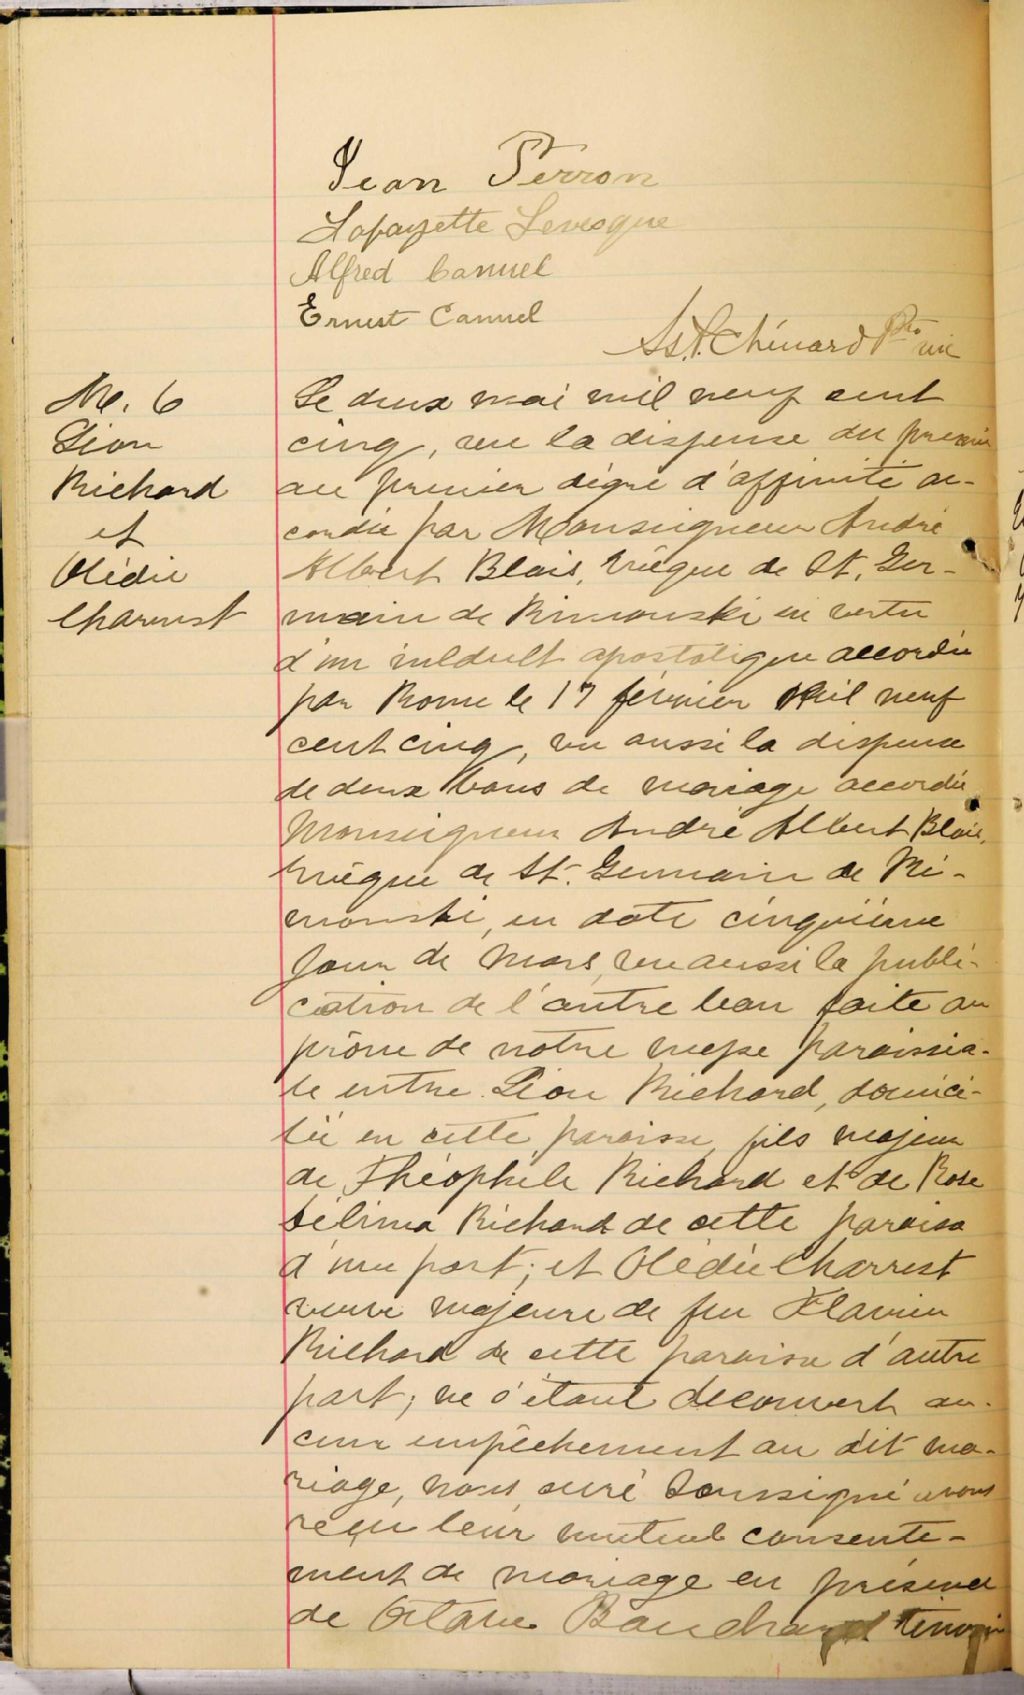 Jean Perron
Lafayette Levesque
Alfred Canuel
Ernest Canuel
Chénard Ptre
M. 6
Léon
Richard
et
Olédie
Charrest
Le deux mai mil neuf cent
cinq, vu la dispense du premier
au premier dégré d'affinité ac-
cordée par Monseigneur André
Albert Blais, Évêque de St. Ger-
main de Rimouski en vertu
d'un indult apostolique accordée
par Rome le 17 février mil neuf
cent cinq, vu aussi la dispense
de deux bans de mariage accordée
Monseigneur André Albert Blais,
Évêque de St. Germain de Ri-
mouski, en date cinquième
jour de Mars, vu aussi la publi-
cation de l'autre ban faite au
prône de notre messe paroissia-
le entre Léon Richard, domici-
lié en cette paroisse, fils majeur
de Théophile Richard et de Rose
Sélima Richard de cette paroisse
d'une part; et Olédie Charrest
veuve majeure de feu Flavien
Richard de cette paroisse d'autre
part; ne s'étant découvert au-
cun empêchement au dit ma-
riage, nous curé soussigné avons
reçu leur mutuel consente-
ment de mariage en présence
de Octave Bouchard témoin